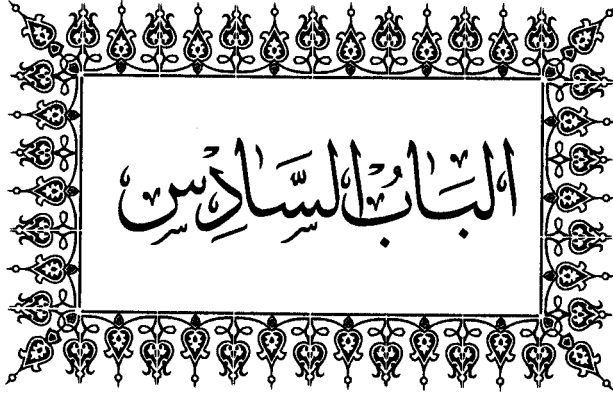 البَابُ السَّادِس